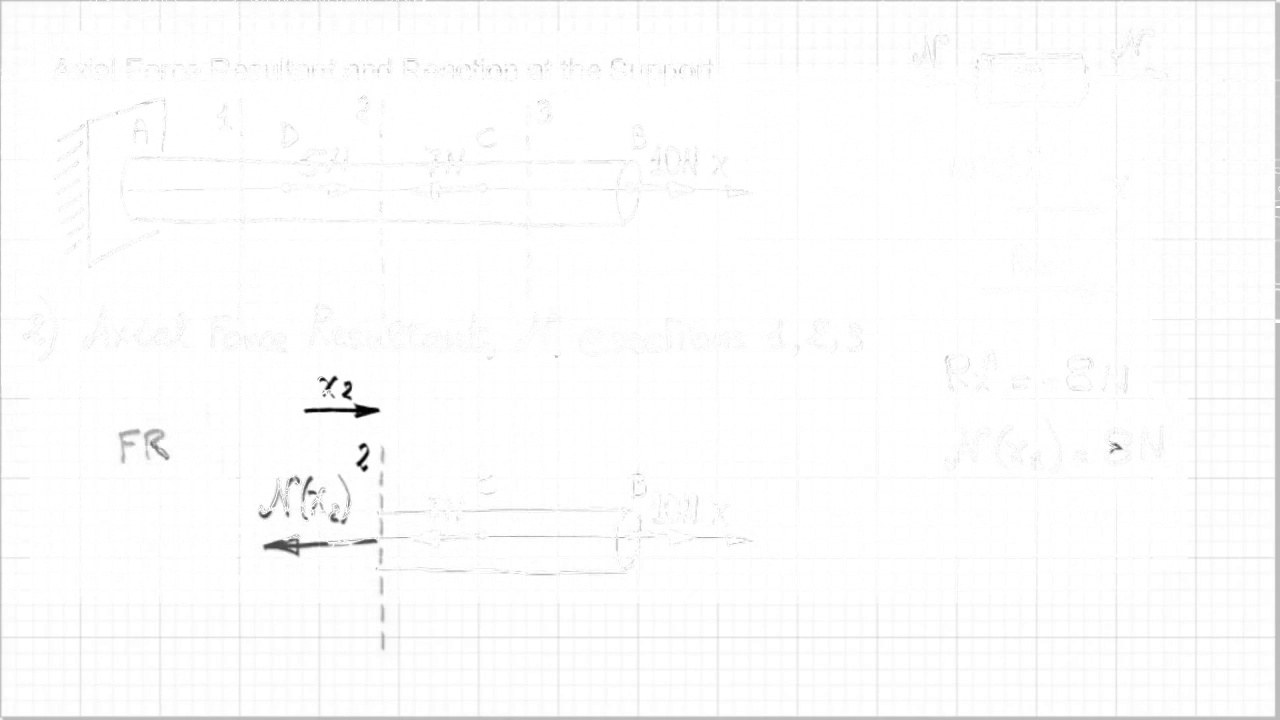 Axial Force Resultant and Reaction at the Support
N N
1 2 3
A D C B
5N 7N 10N x
2) Axial Force Resultant, N, @sections 1,2,3
x₂
Rₓᴬ = -8N
FR
2
N(x₁) = 8N
N(x₂) 7N C B 10N x